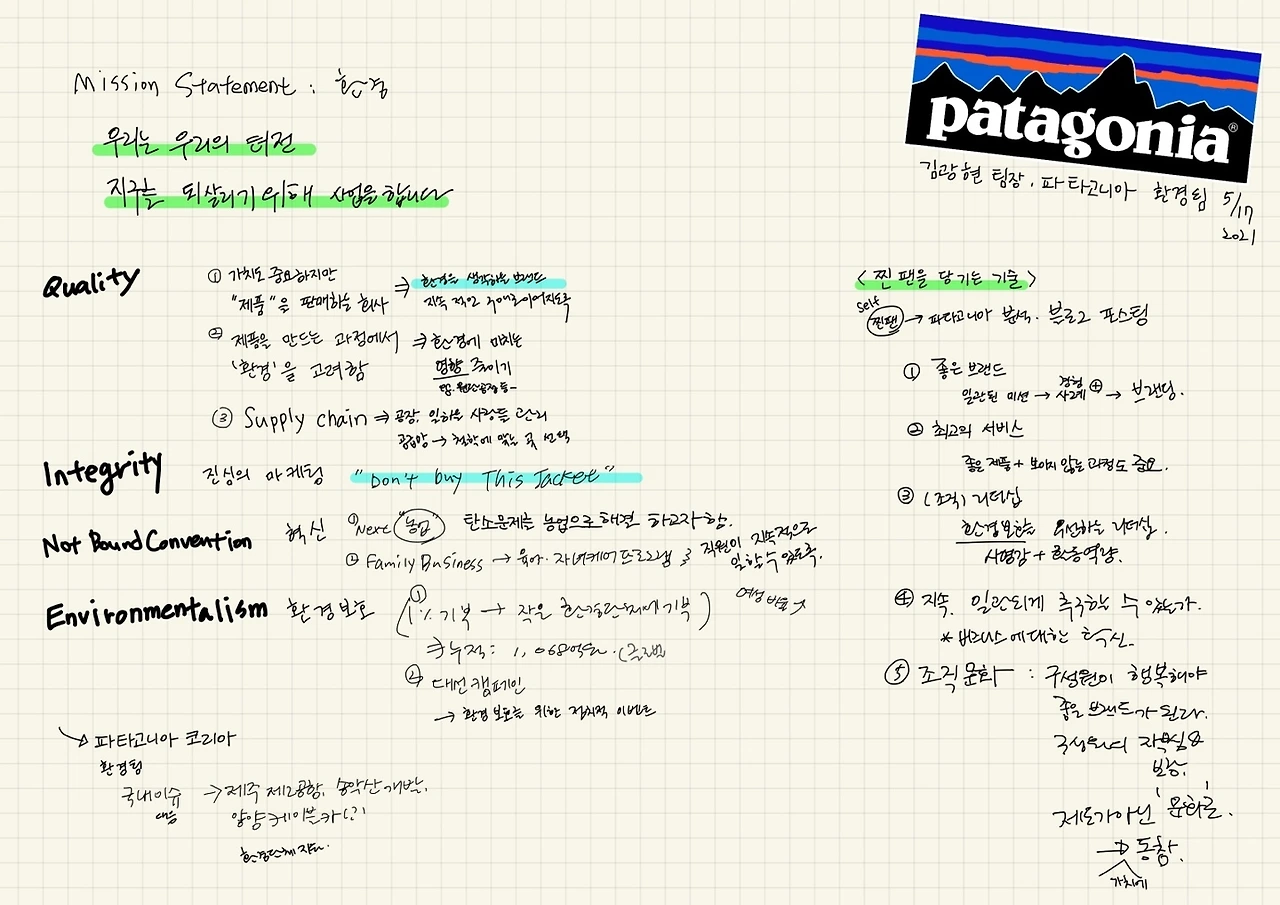 Mission Statement : 환경
우리는 우리의 터전
지구를 되살리기 위해 사업을 합니다
patagonia®
김광현 팀장, 파타고니아 환경팀 5/17
2021
Quality
① 가치도 중요하지만
"제품"을 판매하는 회사
⇒ 환경을 생각하는 브랜드
지속적인 구매로 이어지도록
② 제품을 만드는 과정에서
'환경'을 고려함
⇒ 환경에 미치는
영향 줄이기
③ Supply chain ⇒ 공장, 일하는 사람들 관리
공급망 → 철학에 맞는 곳 선택
Integrity 진심의 마케팅 "Don't buy This Jacket"
Not Bound Convention 혁신
① Next "농업" 탄소문제는 농업으로 해결 하고자함.
② Family Business → 육아·자녀케어 프로그램 ⇒ 직원이 지속적으로
일할 수 있도록.
Environmentalism 환경보호
① (1% 기부 → 작은 환경단체에 기부)
⇒ 누적: 1,068억원. (글로벌
② 대선 캠페인
→ 환경보호를 위한 정치적 이벤트
→ 파타고니아 코리아
환경팀
국내이슈 → 제주 제2공항, 송악산 개발,
대응
양양 케이블카 (?)
<찐팬을 당기는 기술>
Self
찐팬 → 파타고니아 분석. 블로그 포스팅
① 좋은 브랜드
일관된 미션 → 경험 사례 ⊕ → 브랜딩.
② 최고의 서비스
좋은 제품 + 보이지 않는 과정도 중요.
③ (조직) 리더십
환경보호를 우선하는 리더십.
사명감 + 환동역량.
④ 지속, 일관되게 추구할 수 있는가.
* 비즈니스에 대한 혁신.
⑤ 조직문화 : 구성원이 행복해야
좋은 브랜드가 된다.
구성원의
보상.
제도가 아닌 '문화'로.
→ 동참.
가치에